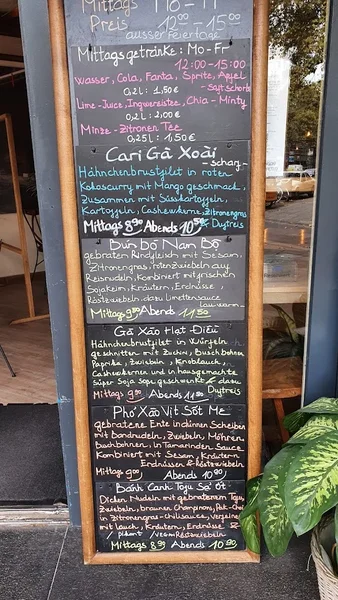 Mittags Mo - Fr
Preis 12:00 - 15:00
ausser Feiertage
Mittagsgetränke : Mo - Fr
12:00 - 15:00
Wasser, Cola, Fanta, Sprite, Apfel
- saftschorle
0,2l : 1,50€
Lime-Juice, Ingwereistee, Chia - Minty
0,2l : 2,00€
Minze - Zitronen Tee
0,25l : 1,50€
Cari Gà Xoài
- scharf -
Hähnchenbrustfilet in roten
Kokoscurry mit Mango geschmack,
zusammen mit Süsskartoffeln,
Kartoffeln, Cashewkerne, Zitronengras
& Duftreis
Mittags 8,90 Abends 10,50
Bún bò Nam Bộ
gebraten Rindfleisch mit Sesam,
Zitronengras, roten Zwiebeln auf
Reisnudeln, kombiniert mit frischen
Sojakeim, Kräutern, Erdnüsse,
Röstzwiebeln, dazu Limettensauce
- lauwarm -
Mittags 9,90 Abend 11,50
Gà Xào Hạt Điều
Hähnchenbrustfilet in Würfeln
geschnitten mit Zuchini, Buschbohnen
Paprika, Zwiebeln, Knoblauch,
Cashewkernen und in hausgemachte
süßer Soja Soße geschwenkt & dazu
Duftreis
Mittags 9,00 Abends 11,00
Phở Xào Vịt Sốt Me
gebratene Ente in dünnen Scheiben
mit Bandnudeln, Zwiebeln, Möhren,
Buschbohnen, in Tamarinden Sauce
kombiniert mit Sesam, Kräutern
Erdnüssen & Röstzwiebeln
Mittags 9,00 Abends 10,90
Bánh Canh Tofu Sả Ớt
Dicken Nudeln mit gebratenem Tofu,
Zwiebeln, braunen Champinons, Pak-Choi
in Zitronengras-chilisauce, verfeinert
mit Lauch, Kräutern, Erdnüsse &
/ pikant / vegan Röstzwiebeln
Mittags 8,90 Abends 10,90